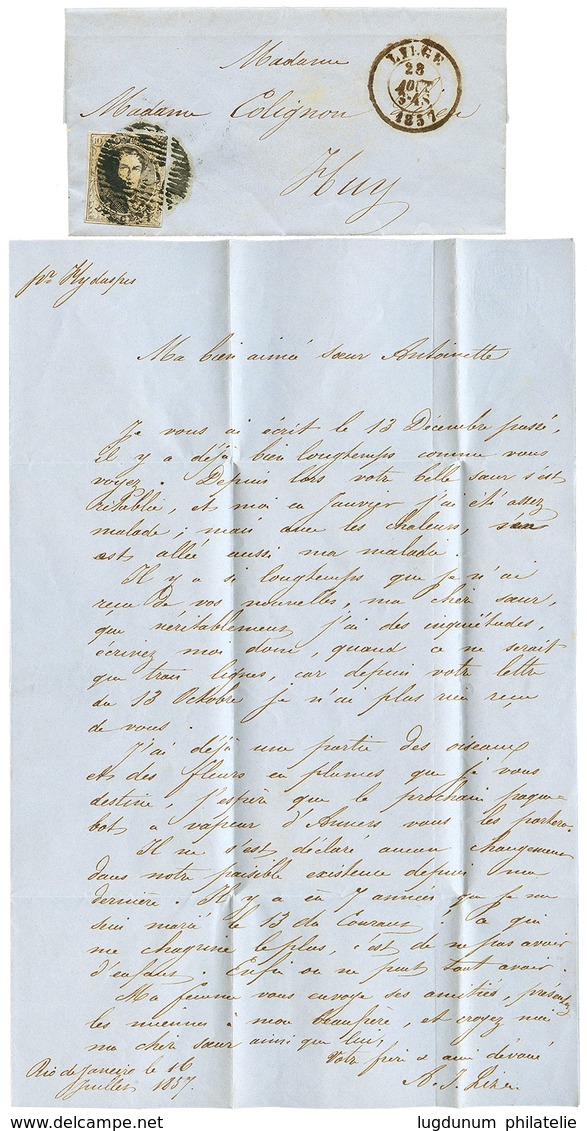 Madame
Madame Colignon
Huy
LIEGE
28
AOUT
1857
pr Hydaspes
Ma bien aimé sœur Antoinette
Je vous ai écrit le 13 Décembre passé,
il y a déjà bien longtemps comme vous
voyez. Depuis lors votre belle sœur s'est
rétablie, et moi en Janvier j'ai été assez
malade; mais avec les chaleurs, s'en
est allée aussi ma maladie.
Il y a si longtemps que je n'ai
recu de vos nouvelles, ma cher sœur,
que veritablement j'ai des inquiétudes,
écrivez moi donc, quand ce ne serait
que trois lignes, car depuis votre lettre
du 13 Octobre je n'ai plus rien reçu
de vous.
J'ai déjà une partie des oiseaux
et des fleurs en plumes que je vous
destine, j'espère que le prochain paque-
bot a vapeur d'Anvers vous les portera.
Il ne s'est déclaré aucun changement
dans notre paisible existence depuis ma
dernière. Il y a eu 7 années que je me
suis marié le 13 du Courant, ce qui
me chagrine le plus, c'est de ne pas avoir
d'enfants. Enfin on ne peut tout avoir.
Ma femme vous envoye ses amitiés, présentez
les miennes à mon beaufrère, et croyez moi
ma cher sœur ainsi que lui,
Votre frère & ami dévoué
Rio de Janeiro le 16
Juillet 1857.
A. J.
www.delcampe.net
lugdunum philatelie